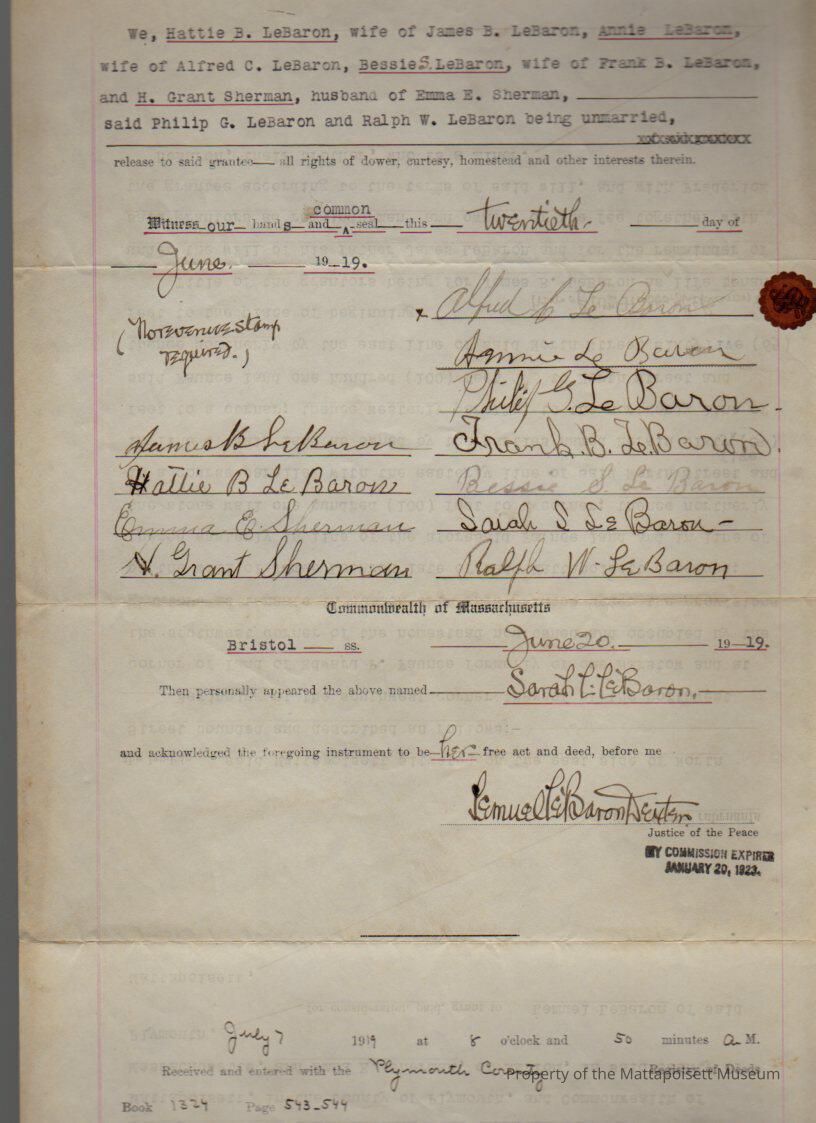 We, Hattie B. LeBaron, wife of James B. LeBaron, Annie LeBaron,
wife of Alfred C. LeBaron, Bessie S. LeBaron, wife of Frank B. LeBaron,
and H. Grant Sherman, husband of Emma E. Sherman,
said Philip G. LeBaron and Ralph W. LeBaron being unmarried,
release to said grantee all rights of dower, curtesy, homestead and other interests therein.
common
Witness our hands and ʌ seal this twentieth day of
June 1919.
(No revenue stamp
required.)
x Alfred C Le Baron
Annie Le Baron
Philip G. Le Baron.
James B LeBaron Frank. B. LeBaron.
Hattie B Le Baron Bessie S. Le Baron
Emma E. Sherman Sarah L Le Baron
H. Grant Sherman Ralph W. LeBaron
Commonwealth of Massachusetts
Bristol ss. June 20. 1919.
Then personally appeared the above named Sarah L. LeBaron.
and acknowledged the foregoing instrument to be her free act and deed, before me
Lemuel LeBaron Dexter
Justice of the Peace
MY COMMISSION EXPIRES
JANUARY 20, 1923.
July 7 1919 at 8 o'clock and 50 minutes A. M.
Received and entered with the Plymouth Register of Deeds
Property of the Mattapoisett Museum
Book 1324 Page 543-544